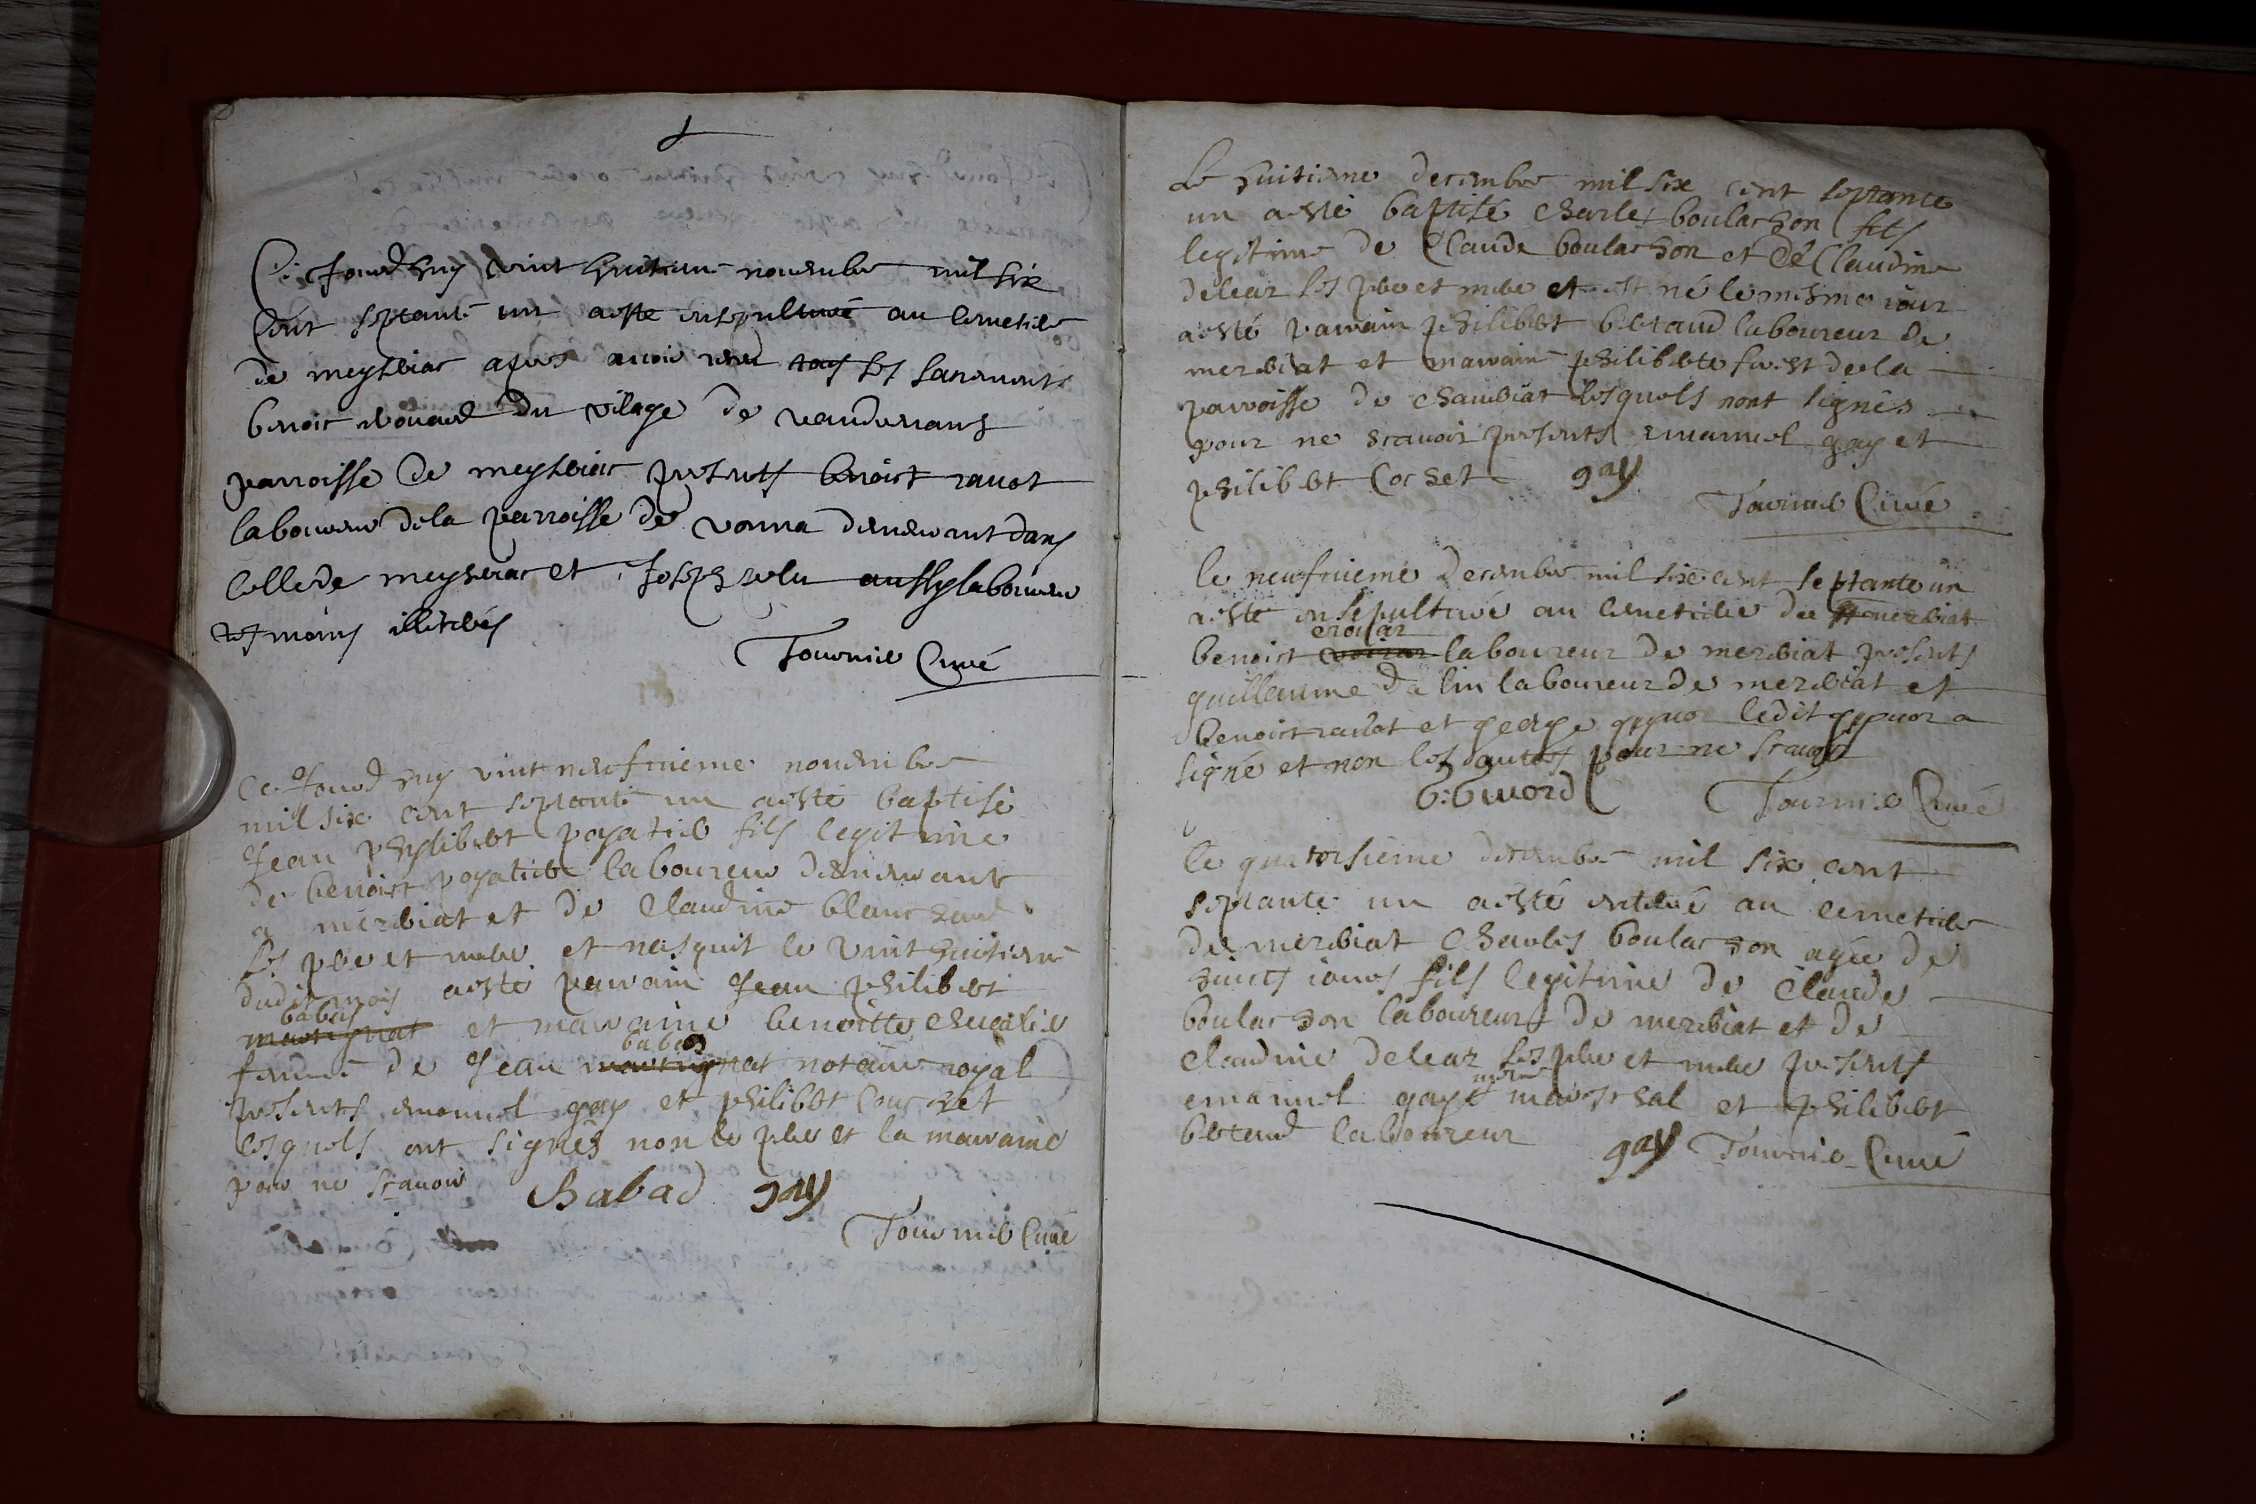 Ce Jourdhuy vint huitieme novembre mil six
Cent septante un aeste ensepulturé au cimetiere
de meyseriac apres avoir receu tous ses sacrements
benoit du vilage de
parroisse de meyseriac presents benoist ravot
laboureur de la parroisse de vonna demeurant dans
celle de meyseriac et Joseph aussy laboureur
tesmoins illiterés
Tournier Curé
Ce Jourdhuy vint neufvieme novembre
mil six cent septante un aesté baptisé
Jean phylibert poyatier fils legitime
de benoist poyatier laboureur demeurant
a mezeriat et de Claudine blanchard
ses pere et mere et nasquit le vint huitieme
dudit mois aesté parrain Jean philibert
babad
martignat et marraine benoitte chevalier
babad
femme de Jean martignat notaire royal
presents emanuel gay et philibert Cochet
lesquels ont signés non le pere et la marraine
pour ne scavoir Babad gay
Tournier Curé
Le huitieme decembre mil six cent septante
un aesté baptisé Charles boulachon fils
legitime de Claude boulachon et de Claudine
deleaz ses pere et mere et est né le mesme iour
aesté parrain philibert bertaud laboureur de
mezeriat et marraine philiberte de la
parroisse de chaveriat lesquels nont signés
pour ne scavoir presents emanuel gay et
philibert Cochet gay
Tournier Curé
le neufvieme decembre mil six cent septante un
aeste ensepulturé au cimetiere de mezeriat
benoist laboureur de mezeriat presents
guillaume dalin laboureur de mezeriat et
benoist ravot et george ledit a
signé et non les autres pour ne scavoir
Tournier Curé
le quatorsieme decembre mil six cent
septante un aesté enterré au cemetiere
de mezeriat Charles boulachon agée de
huicts iours fils legitime de Claude
boulachon laboureur de mezeriat et de
Claudine deleaz ses pere et mere presents
emanuel gay mareschal et philibert
bertaud laboureur
gay Tournier Curé